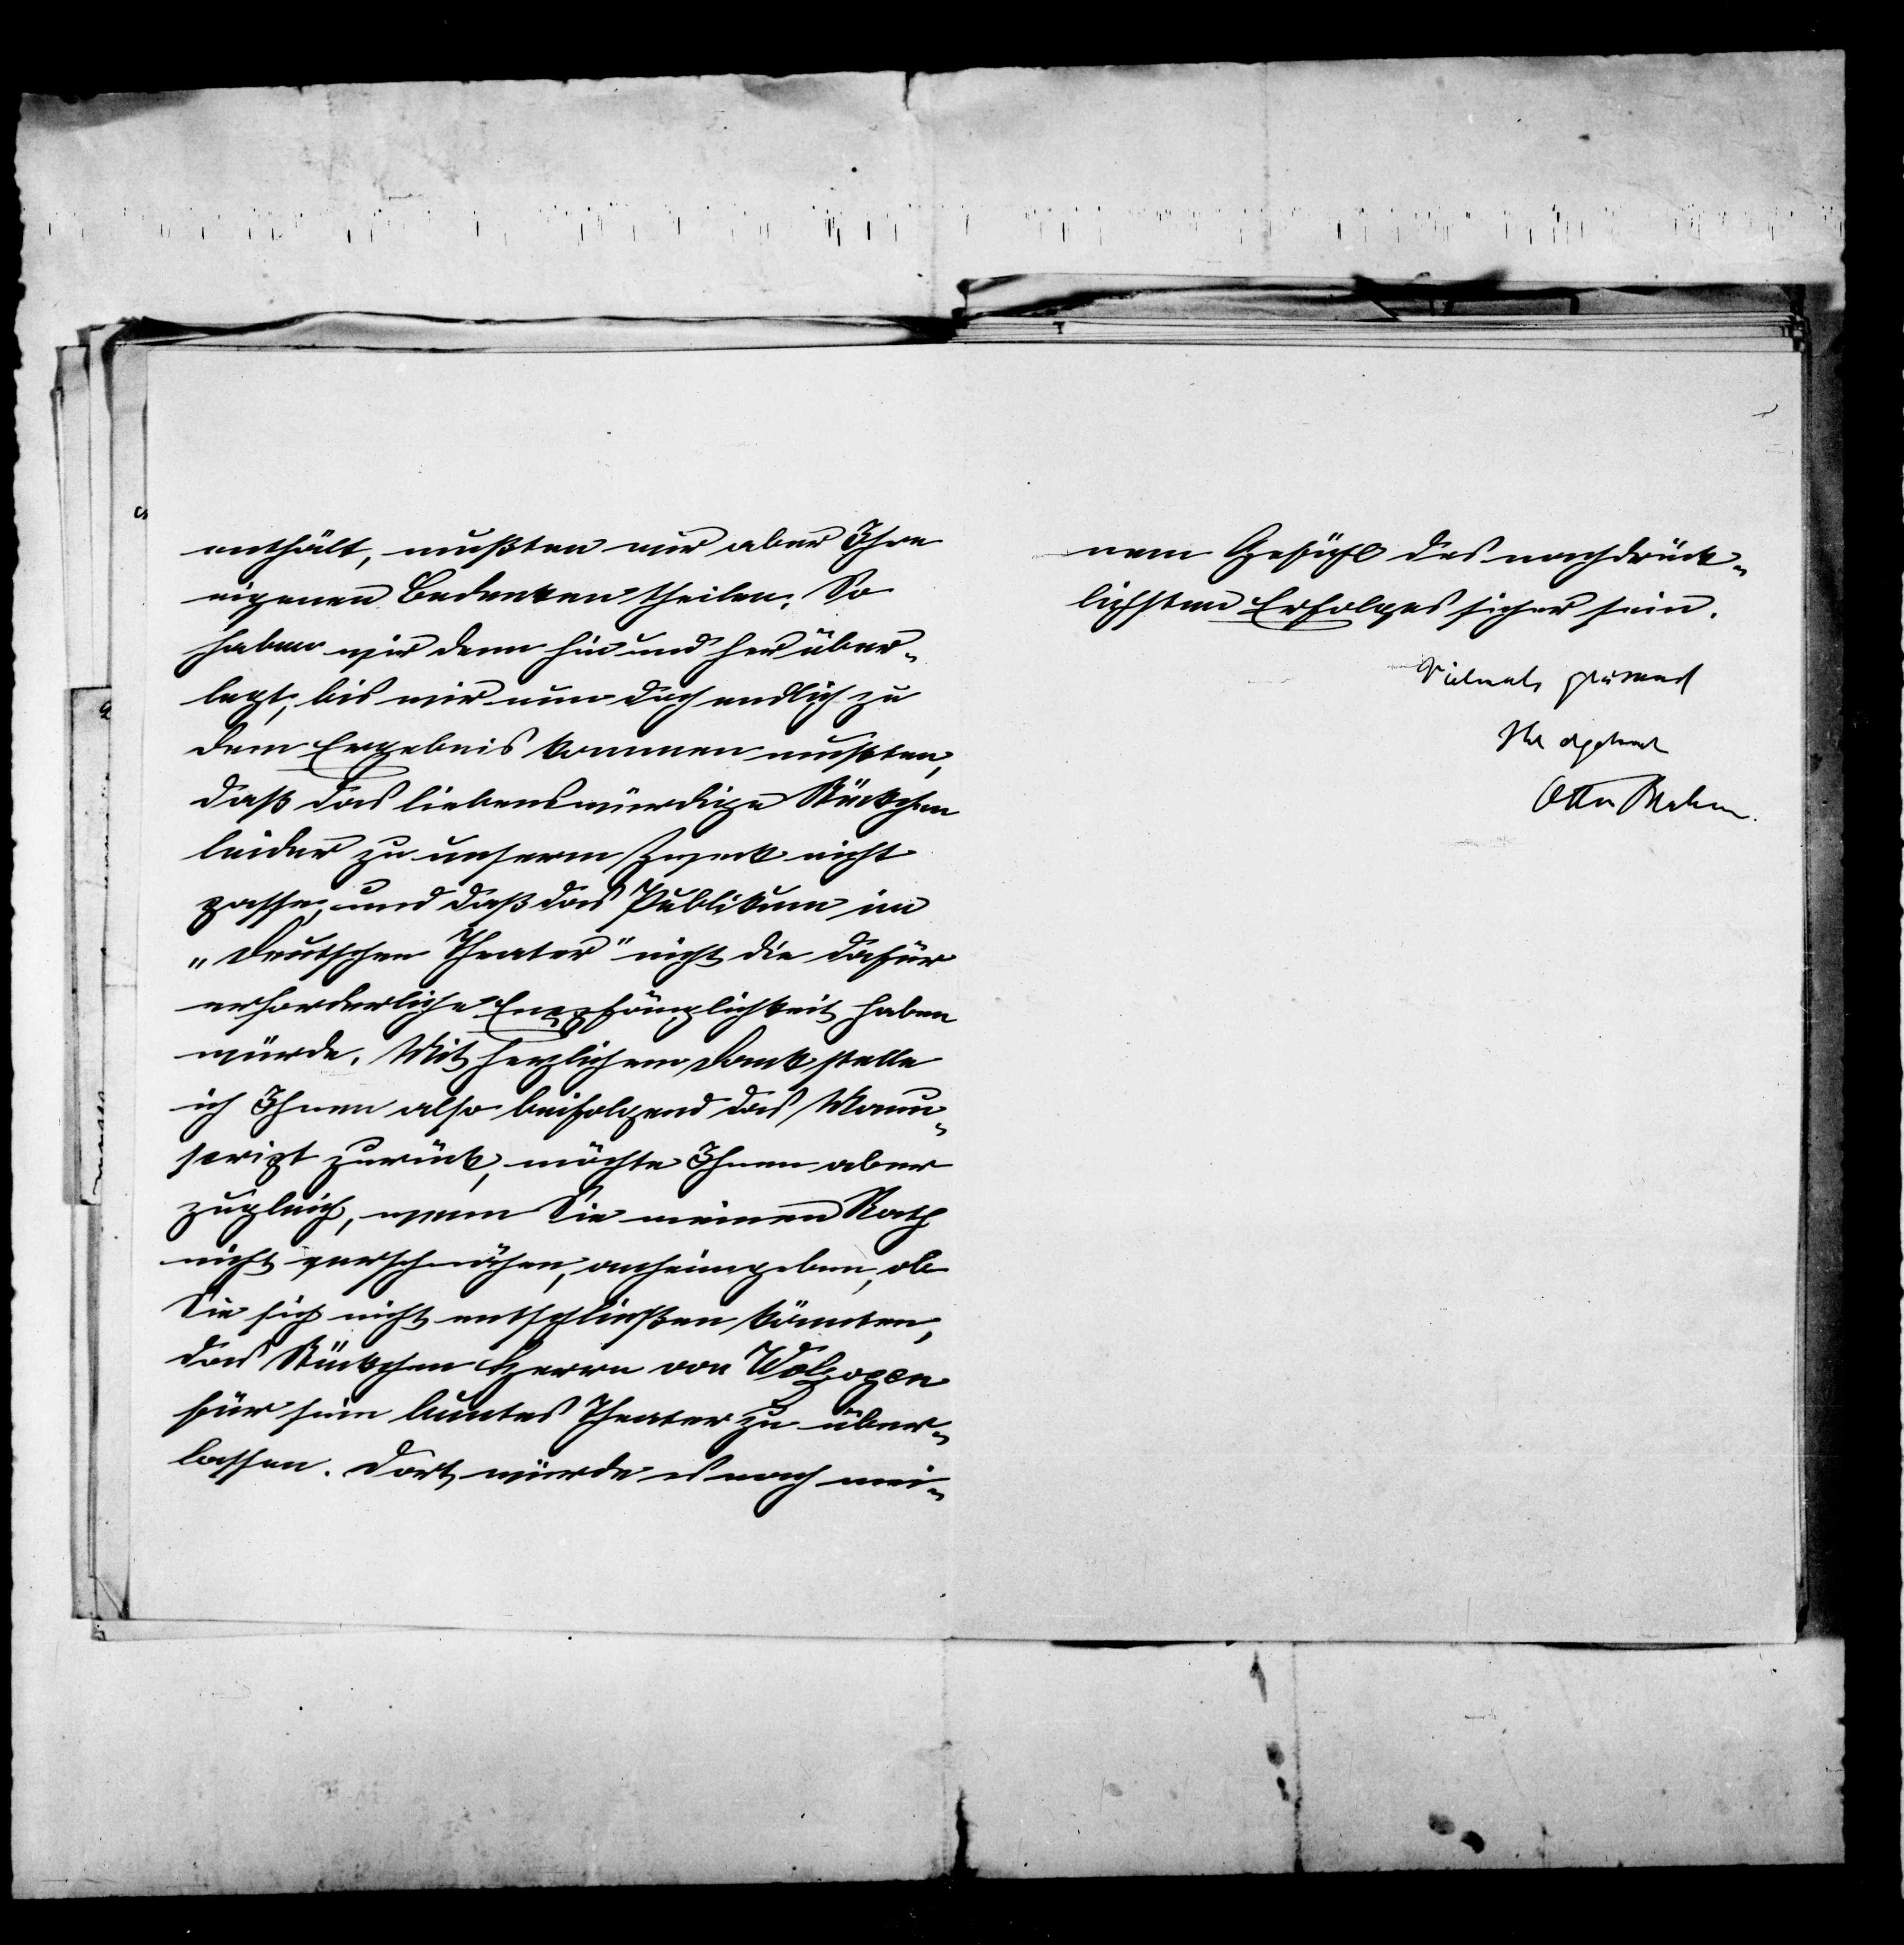 enthält, mußten wir aber Ihre
eigenen Bedenken theilen. So
haben wir denn hin und her über-
legt, bis wir nun doch endlich zu
dem Ergebnis kommen mußten,
daß das liebenswürdige Stückchen
leider zu unserm Zweck nicht
passe, und daß das Publikum im
„Deutschen Theater" nicht die dafür
erforderliche Empfänglichkeit haben
würde. Mit herzlichem Dank stelle
ich Ihnen also beifolgend das Manu-
script zurück, möchte Ihnen aber
zugleich, wenn Sie meinen Rath
nicht verschmähen, anheimgeben, ob
Sie sich nicht entschließen könnten,
das Stückchen Herrn von Wolzogen
für sein buntes Theater zu über-
lassen. Dort würde es nach mei-
nem Gefühl des nachdrück-
lichsten Erfolges sicher sein.
Vielmals grüßend
Ihr ergebener
Otto Brahm.